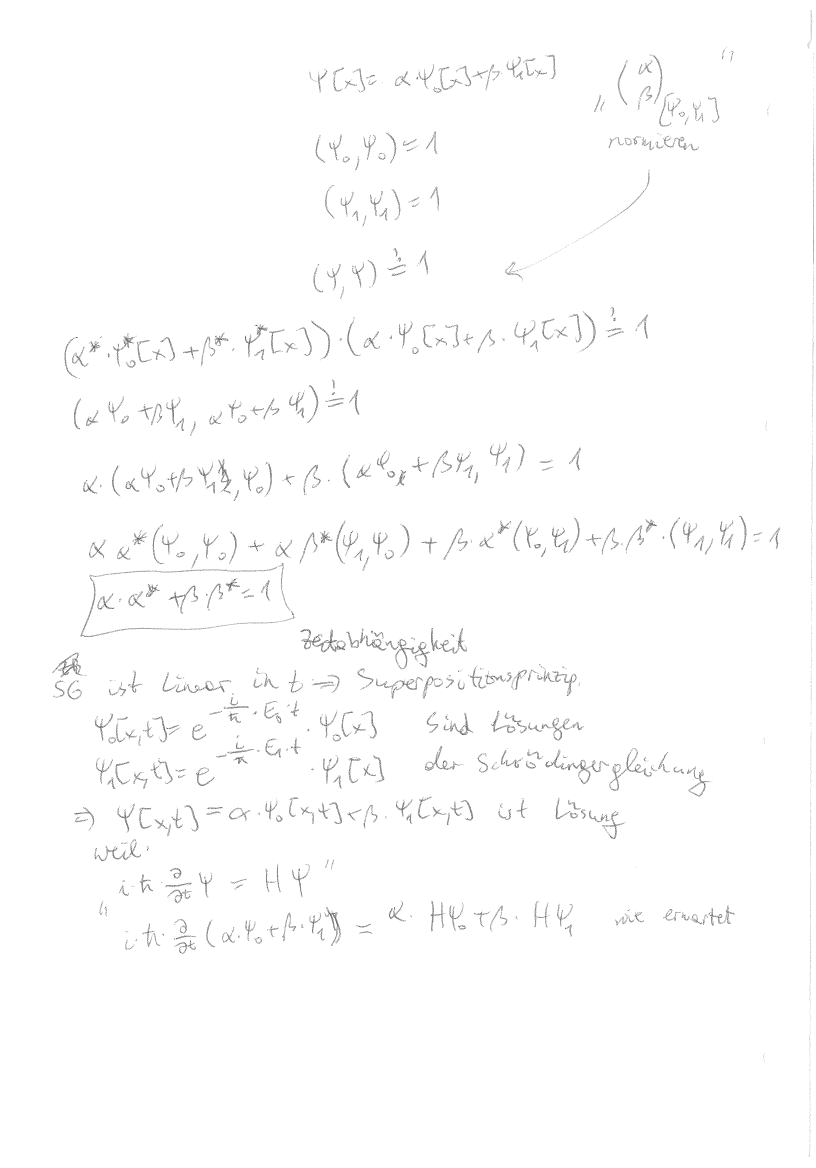 Ψ[x] = α·Ψ₀[x]+β·Ψ₁[x] „(α β)[Ψ₀,Ψ₁]"
normieren
(Ψ₀,Ψ₀) = 1
(Ψ₁,Ψ₁) = 1
(Ψ,Ψ) ≟ 1
(α*·Ψ₀*[x] + β*·Ψ₁*[x])·(α·Ψ₀[x]+β·Ψ₁[x]) ≟ 1
(αΨ₀+βΨ₁, αΨ₀+βΨ₁) ≟ 1
α·(αΨ₀+βΨ₁,Ψ₀) + β·(αΨ₀+βΨ₁,Ψ₁) = 1
αα*(Ψ₀,Ψ₀) + αβ*(Ψ₁,Ψ₀) + β·α*(Ψ₀,Ψ₁)+β·β*·(Ψ₁,Ψ₁)=1
α·α*+β·β*=1
Zeitabhängigkeit
SG ist Linear in t ⇒ Superpositionsprinzip.
Ψ₀[x,t] = e^(-i/ħ·E₀·t)·Ψ₀[x] Sind Lösungen
Ψ₁[x,t] = e^(-i/ħ·E₁·t)·Ψ₁[x] der Schrödingergleichung
⇒ Ψ[x,t] = α·Ψ₀[x,t]+β·Ψ₁[x,t] ist Lösung
weil:
i·ħ·∂/∂t Ψ = HΨ"
„i·ħ·∂/∂t(α·Ψ₀+β·Ψ₁) = α·HΨ₀+β·HΨ₁ wie erwartet